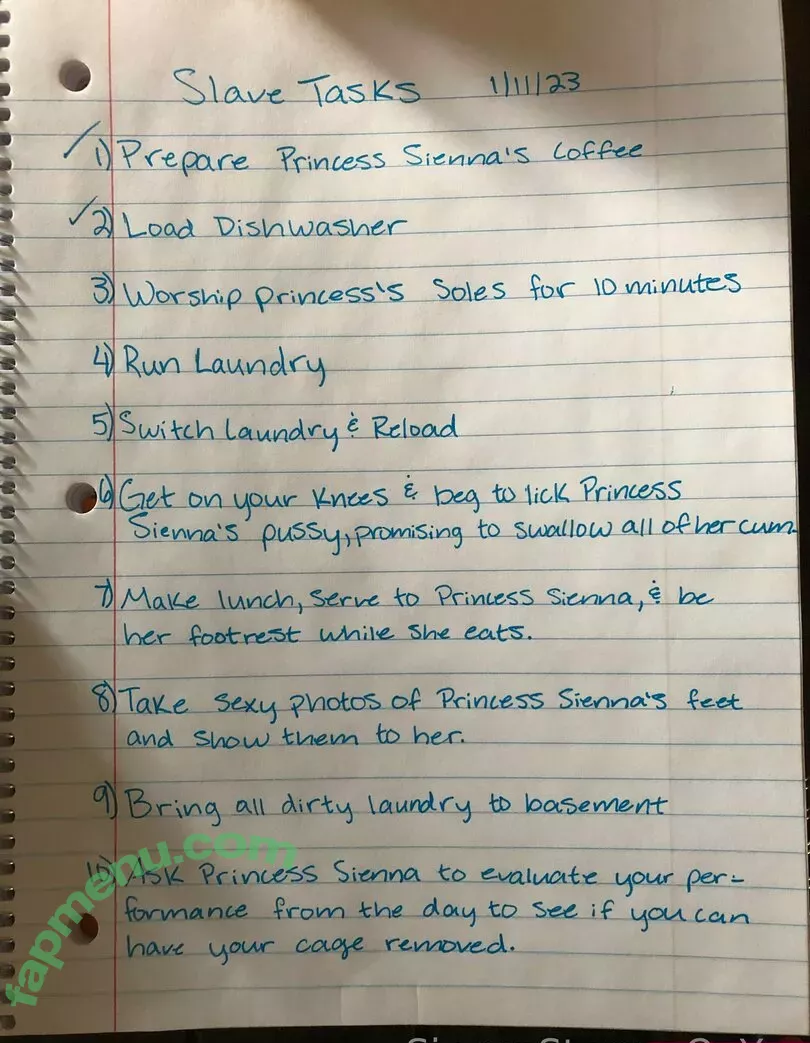 Slave Tasks 1/11/23
1) Prepare Princess Sienna's Coffee
2) Load Dishwasher
3) Worship princess's Soles for 10 minutes
4) Run Laundry
5) Switch Laundry & Reload
6) Get on your Knees & beg to lick Princess
Sienna's pussy, promising to swallow all of her cum.
7) Make lunch, serve to Princess Sienna, & be
her footrest while she eats.
8) Take sexy photos of Princess Sienna's feet
and show them to her.
9) Bring all dirty laundry to basement
10) Ask Princess Sienna to evaluate your per-
formance from the day to see if you can
have your cage removed.
fapmenu.com